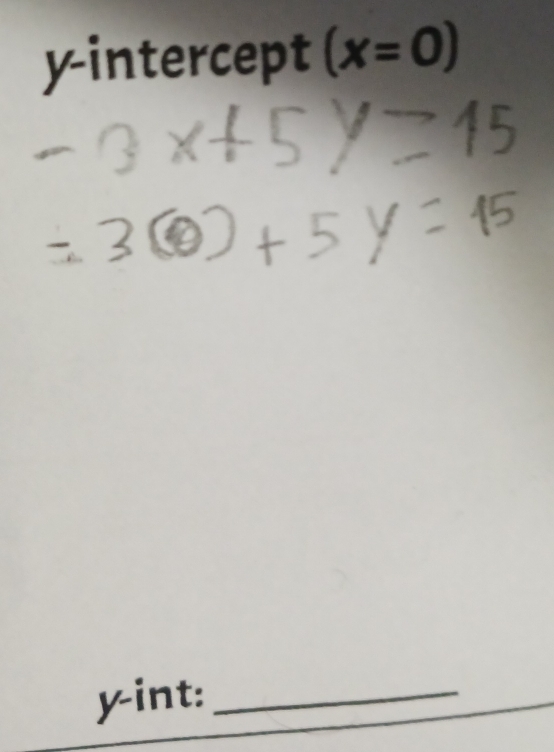 y-intercept (x=0)
-3x+5y=15
-3(0)+5y=15
y-int: